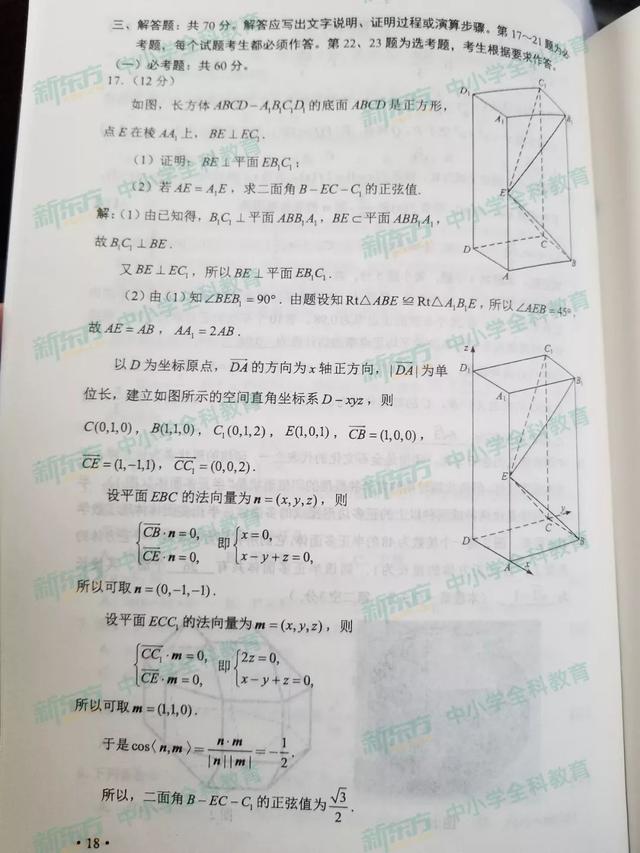 三、解答题：共 70 分。解答应写出文字说明、证明过程或演算步骤。第 17～21 题为必
考题，每个试题考生都必须作答。第 22、23 题为选考题，考生根据要求作答。
（一）必考题：共 60 分。
17.（12 分）
如图，长方体 ABCD－A₁B₁C₁D₁ 的底面 ABCD 是正方形，
点 E 在棱 AA₁ 上，BE⊥EC₁．
（1）证明：BE⊥平面 EB₁C₁；
（2）若 AE＝A₁E，求二面角 B－EC－C₁ 的正弦值．
解：（1）由已知得，B₁C₁⊥平面 ABB₁A₁，BE⊂平面 ABB₁A₁，
故 B₁C₁⊥BE．
又 BE⊥EC₁，所以 BE⊥平面 EB₁C₁．
（2）由（1）知∠BEB₁＝90°．由题设知 Rt△ABE≌Rt△A₁B₁E，所以∠AEB＝45°，
故 AE＝AB，AA₁＝2AB．
以 D 为坐标原点，\overrightarrow{DA} 的方向为 x 轴正方向，|\overrightarrow{DA}| 为单
位长，建立如图所示的空间直角坐标系 D－xyz，则
C(0,1,0)，B(1,1,0)，C₁(0,1,2)，E(1,0,1)，\overrightarrow{CB}＝(1,0,0)，
\overrightarrow{CE}＝(1,−1,1)，\overrightarrow{CC₁}＝(0,0,2)．
设平面 EBC 的法向量为 n＝(x,y,z)，则
{\overrightarrow{CB}·n＝0, 即 {x＝0,
\overrightarrow{CE}·n＝0, x−y+z＝0,
所以可取 n＝(0,−1,−1)．
设平面 ECC₁ 的法向量为 m＝(x,y,z)，则
{\overrightarrow{CC₁}·m＝0, 即 {2z＝0,
\overrightarrow{CE}·m＝0, x−y+z＝0,
所以可取 m＝(1,1,0)．
于是 cos〈n,m〉＝\frac{n·m}{|n||m|}＝−\frac{1}{2}．
所以，二面角 B－EC－C₁ 的正弦值为 \frac{\sqrt{3}}{2}．
·18·
D₁ C₁ A₁ B₁ E D C A B
z D₁ C₁ A₁ B₁ E y D C A B x
新东方 中小学全科教育